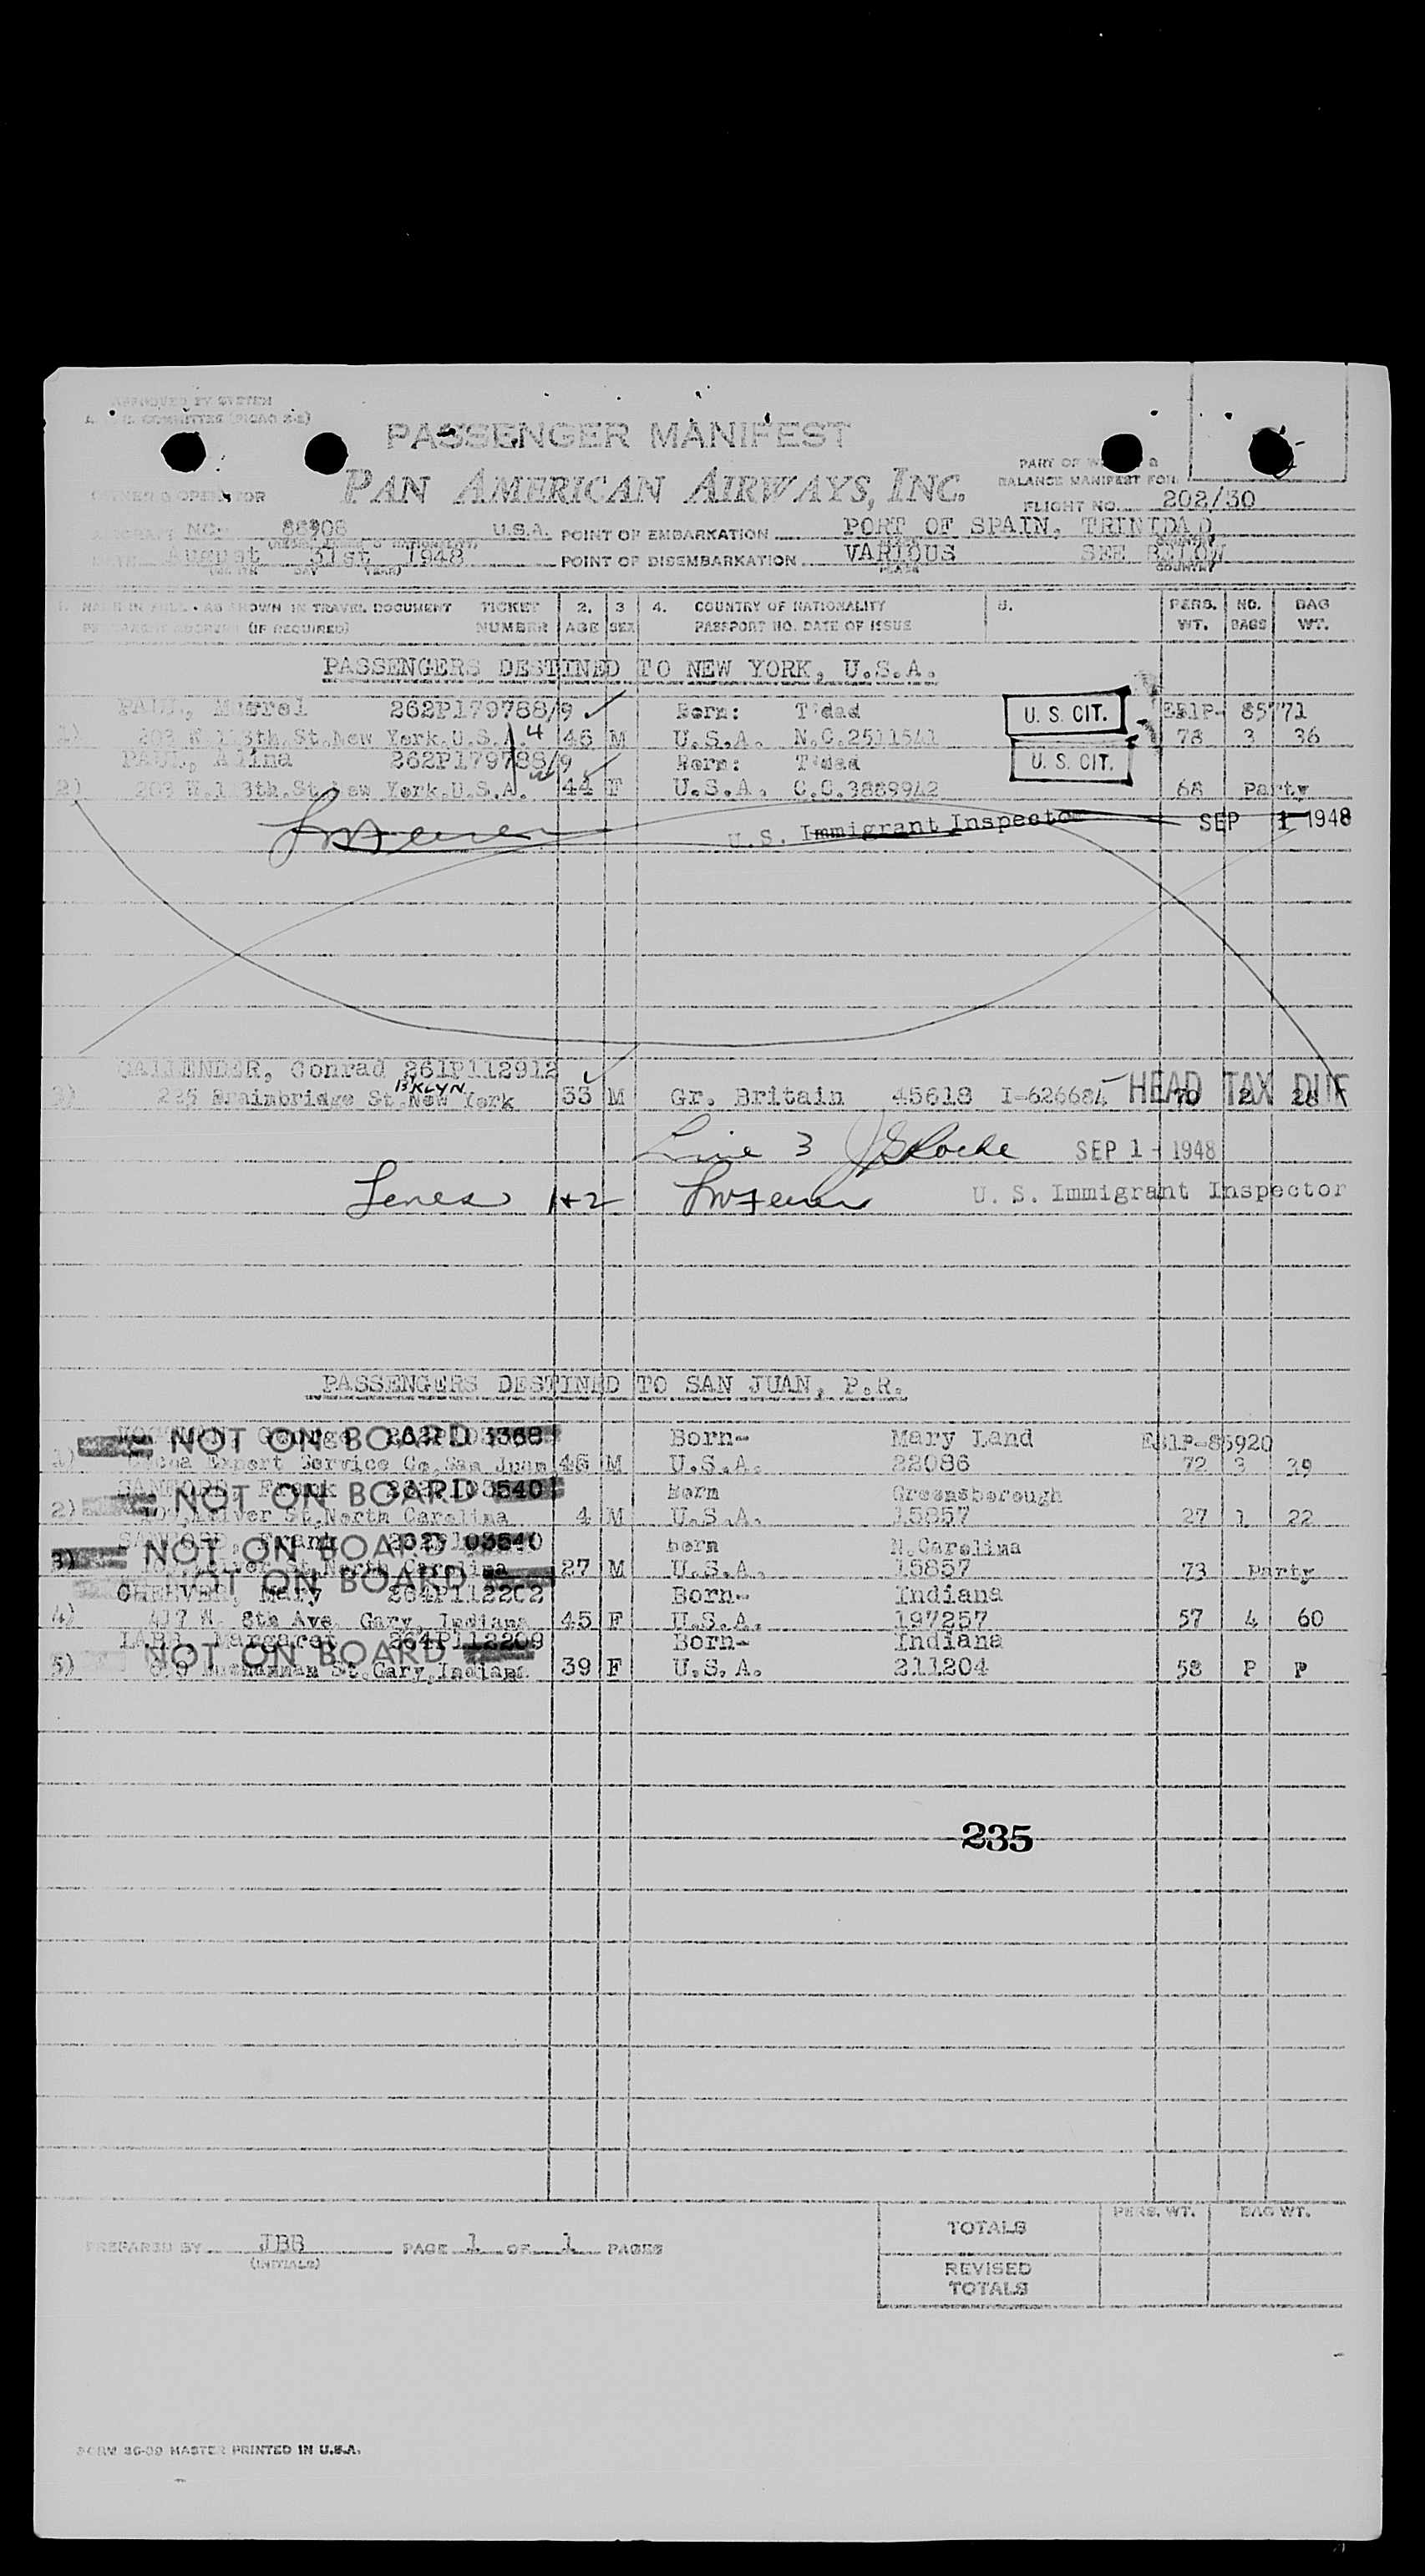 APPROVED BY SYSTEM
COMMITTEE (PICAO 2-2)
PASSENGER MANIFEST
PAN AMERICAN AIRWAYS, INC.
PART OF W &
BALANCE MANIFEST FOR:
OWNER & OPERATOR
FLIGHT NO. 202/30
AIRCRAFT NC- 88908 U.S.A. POINT OF EMBARKATION PORT OF SPAIN, TRINIDAD
DATE August 31st 1948 POINT OF DISEMBARKATION VARIOUS SEE BELOW
DAY YEAR) PLACE COUNTRY
1. NAME IN FULL - AS SHOWN IN TRAVEL DOCUMENT TICKET 2. 3 4. COUNTRY OF NATIONALITY 5. PERS. NO. BAG
(IF REQUIRED) NUMBER AGE SEX PASSPORT NO. DATE OF ISSUE WT. BAGS WT.
PASSENGERS DESTINED TO NEW YORK, U.S.A.
PAUL, 262P179788/9 Born: T'dad U. S. CIT. EB1P- 85771
1) 203 W.113th.St.New York.U.S.A. 4 46 M U.S.A. N.C.2511541 78 3 36
PAUL, Alina 262P179788/9 Born: T'dad U. S. CIT.
2) 203 W.113th.St.New York.U.S.A. 44 F U.S.A. C.C.3889942 68 Party
U.S. Immigrant Inspector SEP 1-1948
CALLENDER, Conrad 261P112912
B'KLYN
3) 225 Brainbridge St.New York 53 M Gr. Britain 45618 I-626684 HEAD TAX DUE 70 2 28
Line 3 JSRoche SEP 1-1948
Lines 1+2 U. S. Immigrant Inspector
PASSENGERS DESTINED TO SAN JUAN, P.R.
NOT ON BOARD George 3368 Born- Mary Land EB1P-85920
1) Cocoa Export Service Co.San Juan 46 M U.S.A. 22086 72 3 39
SANFORD, Frank NOT ON BOARD 540 Born Greensborough
2) River St.North Carolina 4 M U.S.A. 15857 27 1 22
SANFORD, Frank NOT ON BOARD 03540 born N.Carolina
3) River St.North Carolina 27 M U.S.A. 15857 73 Party
NOT ON BOARD
CHEEVER, Mary 264P112202 Born- Indiana
4) 417 W. 8th Ave. Gary, Indiana 45 F U.S.A. 197257 57 4 60
Margaret 264P112209 Born- Indiana
NOT ON BOARD
5) St.Gary,Indiana 39 F U.S.A. 211204 58 P P
235
PERS. WT. BAG WT.
TOTALS
PREPARED BY JBB PAGE 1 OF 1 PAGES
(INITIALS)
REVISED
TOTALS
FORM 36-30 MASTER PRINTED IN U.S.A.